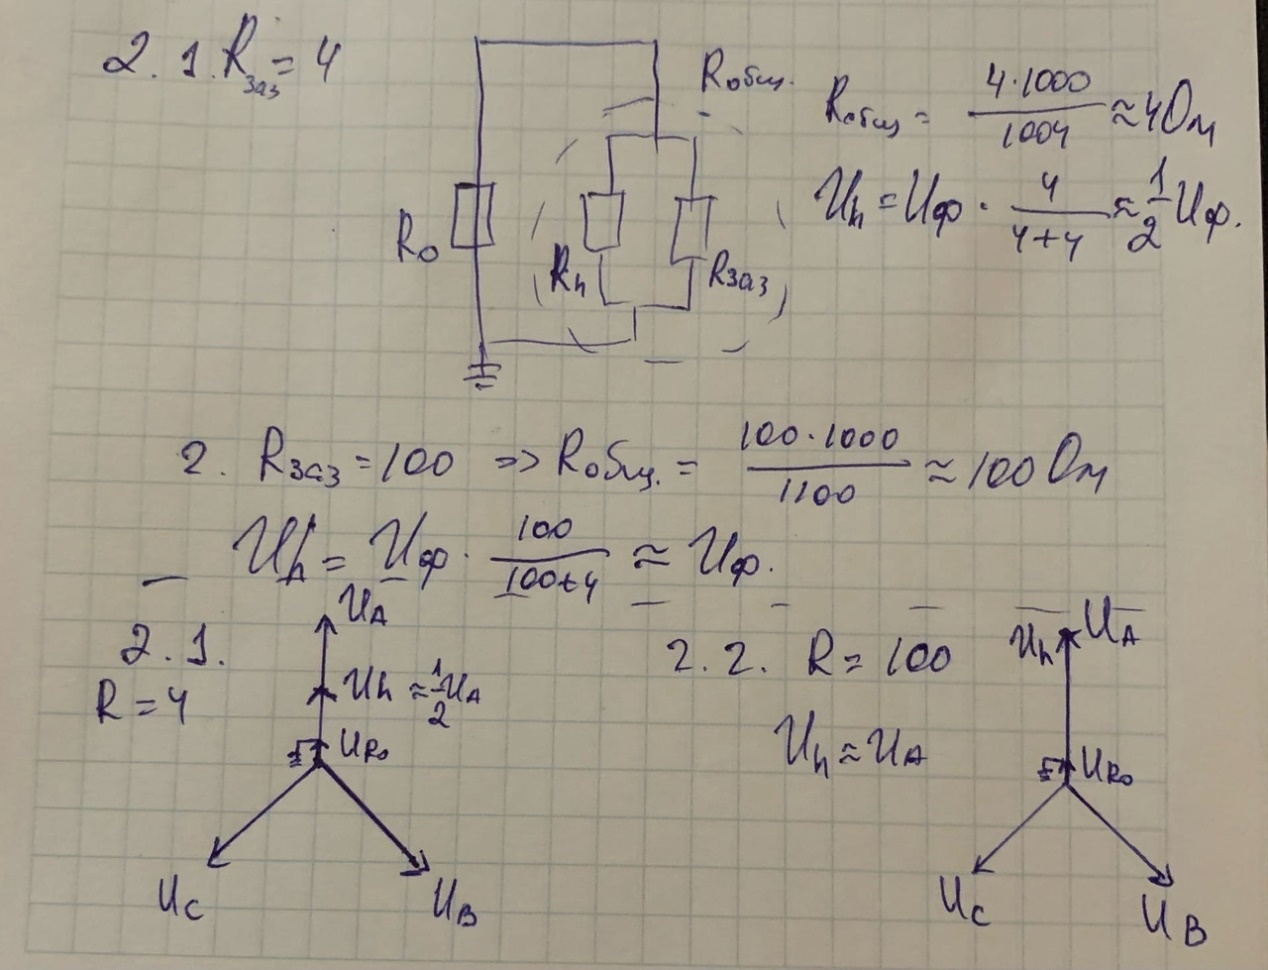 2.1. Rзаз = 4
Rобщ.
Rобщ = 4·1000/1004 ≈ 4 Ом
Uh = Uф · 4/4+4 ≈ 1/2 Uф.
R0
Rh
Rзаз
2. Rзаз = 100 => Rобщ. = 100·1000/1100 ≈ 100 Ом
Uh = Uф · 100/100+4 ≈ Uф.
2.1.
R = 4
UA
Uh ≈ 1/2 UA
UR0
UC
UB
2.2. R = 100
Uh ≈ UA
Uh
UA
UR0
UC
UB